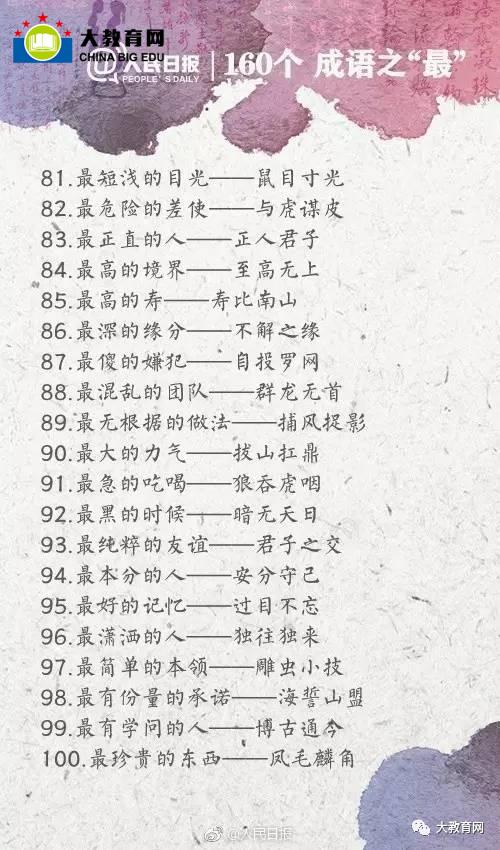 大教育网
CHINA BIG EDU
@人民日报
PEOPLE'S DAILY
160个 成语之“最”
81.最短浅的目光——鼠目寸光
82.最危险的差使——与虎谋皮
83.最正直的人——正人君子
84.最高的境界——至高无上
85.最高的寿——寿比南山
86.最深的缘分——不解之缘
87.最傻的嫌犯——自投罗网
88.最混乱的团队——群龙无首
89.最无根据的做法——捕风捉影
90.最大的力气——拔山扛鼎
91.最急的吃喝——狼吞虎咽
92.最黑的时候——暗无天日
93.最纯粹的友谊——君子之交
94.最本分的人——安分守己
95.最好的记忆——过目不忘
96.最潇洒的人——独往独来
97.最简单的本领——雕虫小技
98.最有份量的承诺——海誓山盟
99.最有学问的人——博古通今
100.最珍贵的东西——凤毛麟角
@人民日报
大教育网